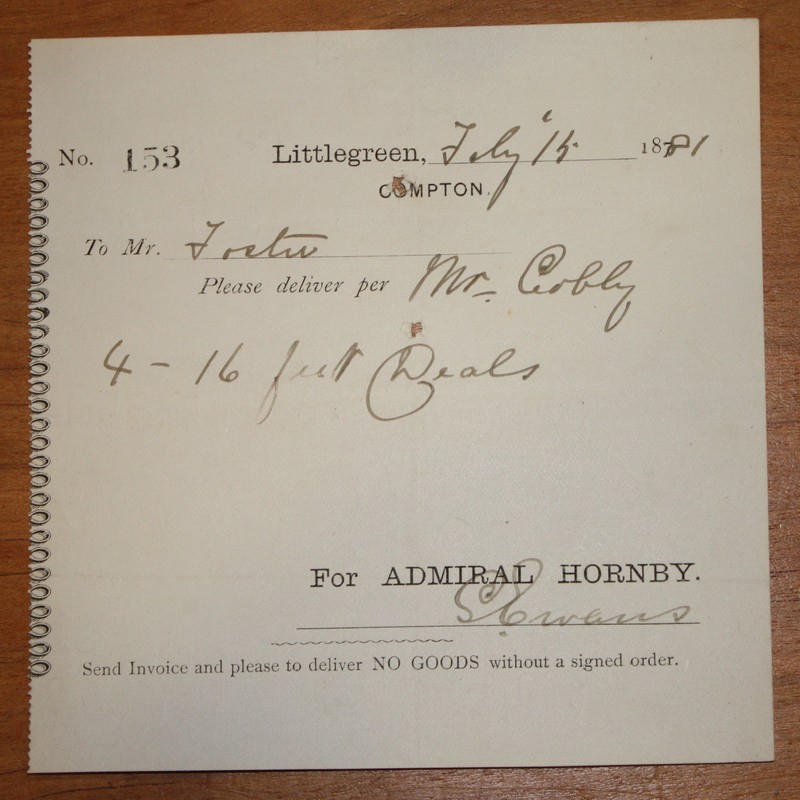 No. 153 Littlegreen, Feby 15 1881
COMPTON.
To Mr. Foster
Please deliver per Mr. Cobby
4 - 16 feet Deals
For ADMIRAL HORNBY.
Evans
Send Invoice and please to deliver NO GOODS without a signed order.